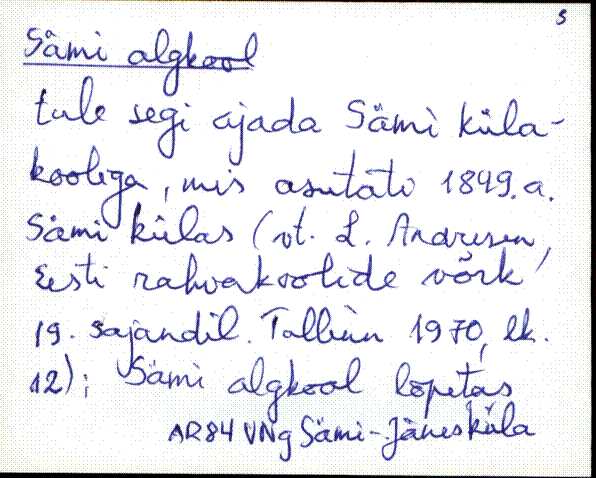 s
Sämi algkool
tule segi ajada Sämi küla-
kooliga, mis asutati 1849.a.
Sämi külas (vt. L. Andresen,
Eesti rahvakoolide võrk
19. sajandil. Tallinn 1970, lk.
12); Sämi algkool lõpetas
AR84 VNg Sämi-Jänesküla